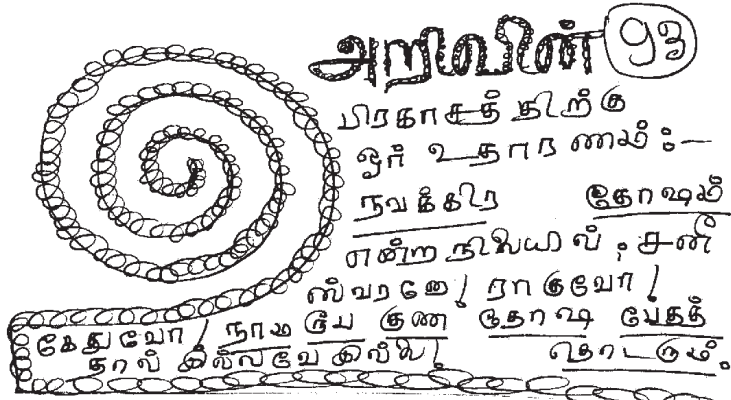 அறிவின் 93
பிரகாசத் திற்கு
ஓர் உதாரணம் :—
நவக்கிர தோஷம்
என்ற நிலையில், சனி
ஸ்வரனோ! ராகுவோ!
கேதுவோ! நாம ரூப குண தோஷ பேதத்
தால் இல்லவே இல்லை! தொடரும்.